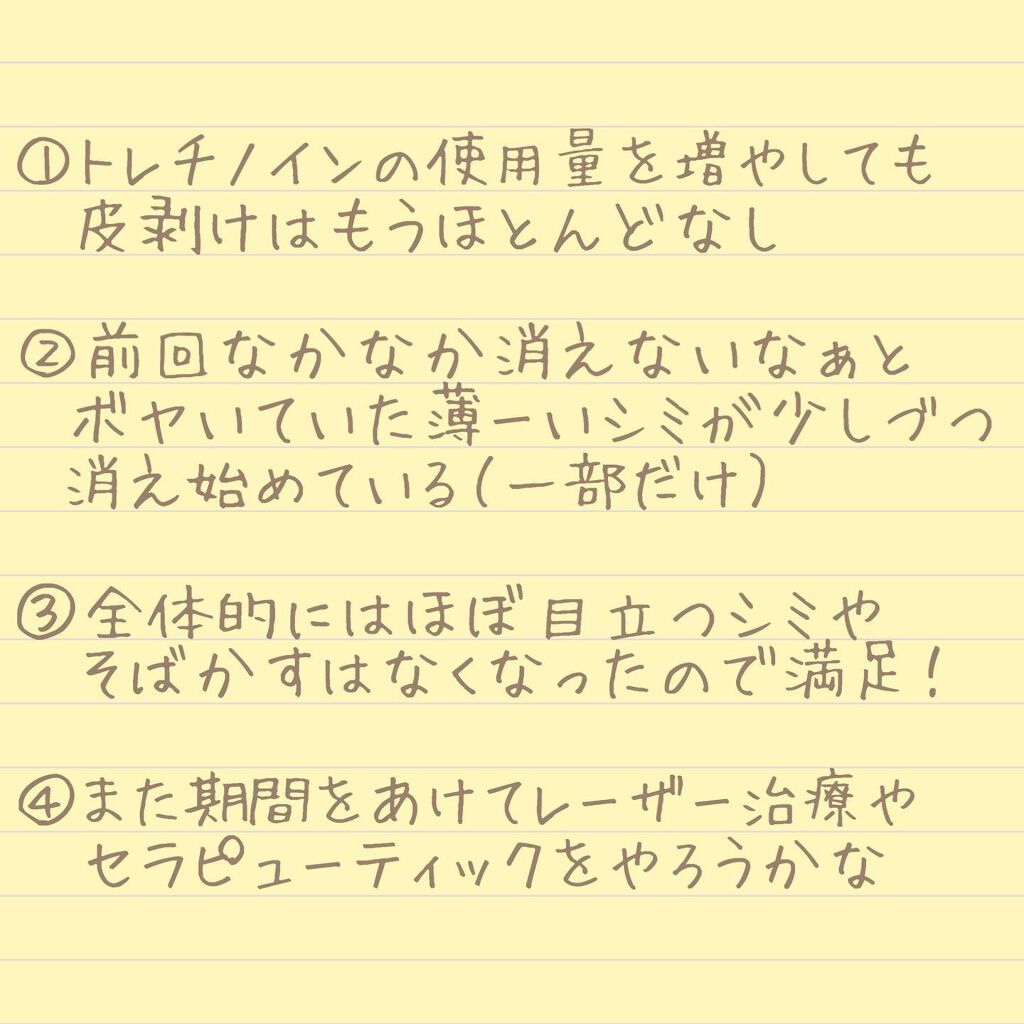 ①トレチノインの使用量を増やしても
皮剥けはもうほとんどなし
②前回なかなか消えないなぁと
ボヤいていた薄ーいシミが少しづつ
消え始めている(一部だけ)
③全体的にはほぼ目立つシミや
そばかすはなくなったので満足!
④また期間をあけてレーザー治療や
セラピューティックをやろうかな